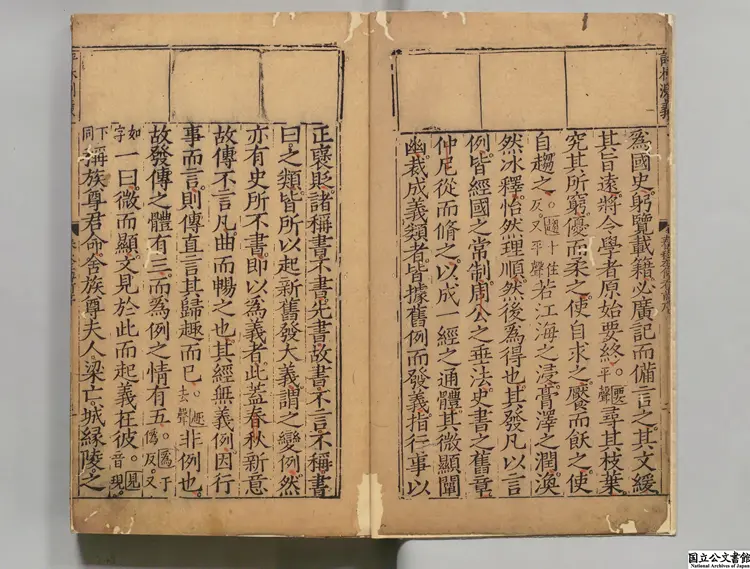 為國史躬覽載籍必廣記而備言之其文緩
其旨遠將令學者原始要終。要平聲尋其枝葉。
究其所窮優而柔之使自求之饜而飫之使
自趨之。趨七住反又平聲若江海之浸膏澤之潤渙
然冰釋怡然理順然後為得也其發凡以言
例皆經國之常制周公之垂法史書之舊章
仲尼從而脩之以成一經之通體其微顯闡
幽裁成義類者皆據舊例而發義指行事以
正襃貶諸稱書不書先書故書不言不稱書
曰之類皆所以起新舊發大義謂之變例然
亦有史所不書即以為義者此蓋春秋新意
故傳不言凡曲而暢之也其經無義例因行
事而言則傳直言其歸趣而已去聲非例也
故發傳之體有三而為例之情有五。為于偽反又
如字一曰微而顯文見於此而起義在彼。見音現下同
稱族尊君命舍族尊夫人梁亡城緣陵之
国立公文書館
National Archives of Japan